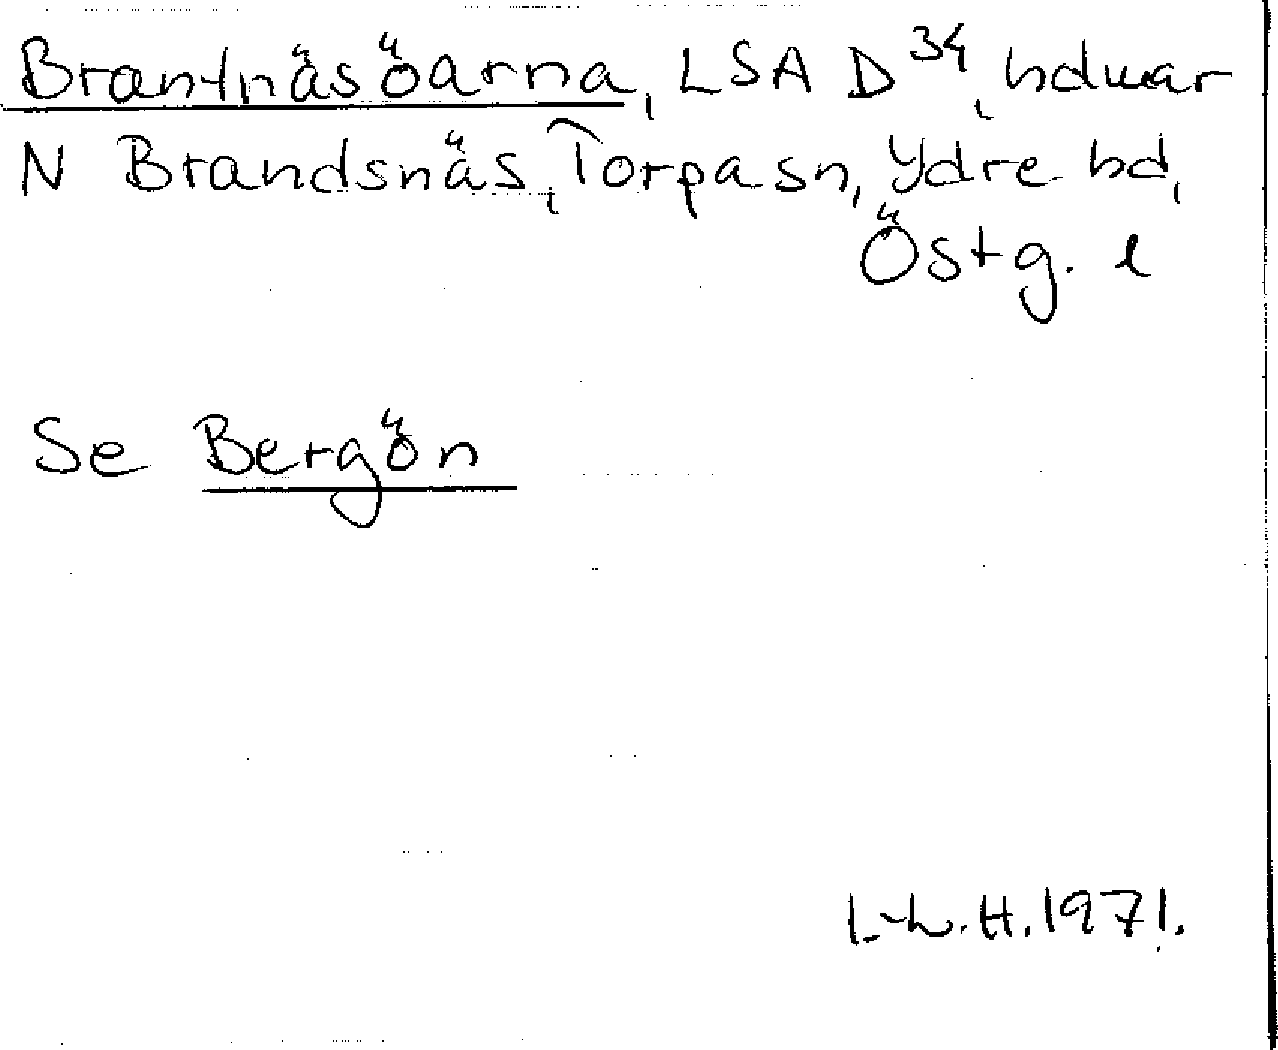 Brantnäsöarna, LSA D34, hdmar
N Brandsnäs, Torpasn, Ydre hd,
Östg. l
Se Bergön
I.-L. H. 1971.